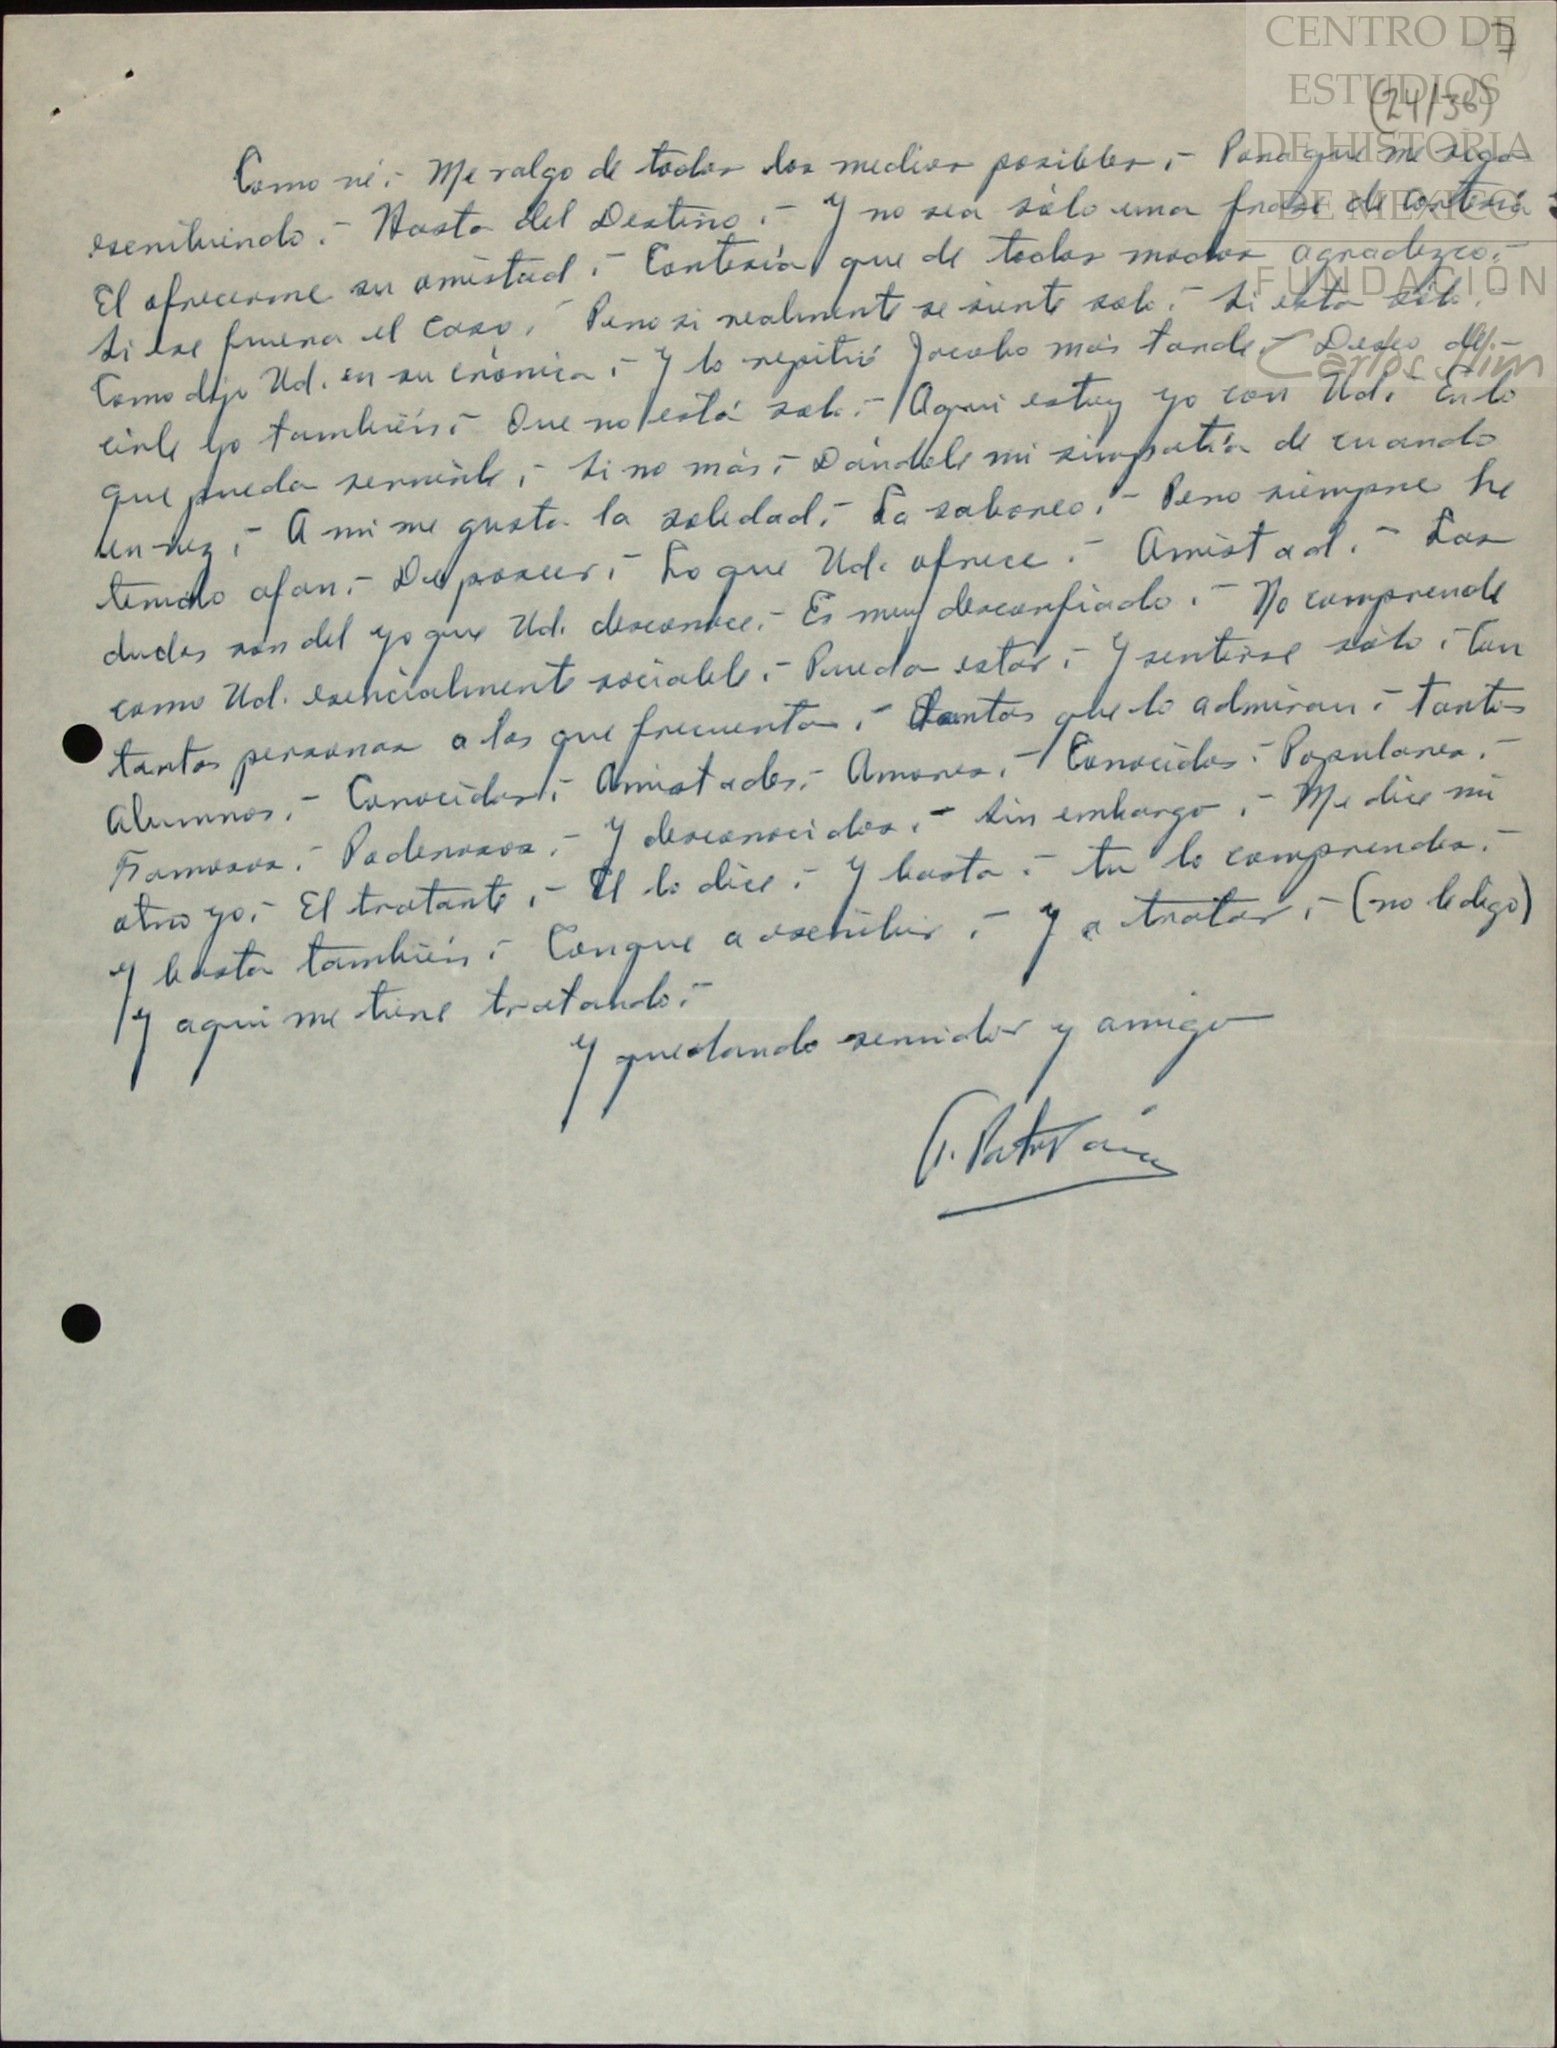 CENTRO DE
ESTUDIOS
DE HISTORIA
DE MÉXICO
FUNDACIÓN
Carlos Slim
(24/36)
Como vé.- Me valgo de todos los medios posibles.- Para que me siga
escribiendo.- Hasta del Destino.- Y no sea sólo una frase de cortesía
El ofrecerme su amistad.- Cortesía que de todos modos agradezco.-
Si ese fuera el caso.- Pero si realmente se siente solo.- Si está sólo.
Como dijo Ud. en su crónica.- Y lo repitió Jacobo más tarde.- Deseo de-
cirle yo también.- Que no está solo.- Aqui estoy yo con Ud.- En lo
que pueda servirle.- Si no más.- Dándole mi simpatía de cuando
en vez.- A mi me gusta la soledad.- La saboreo.- Pero siempre he
tenido afan.- De poseer.- Lo que Ud. ofrece.- Amistad.- Las
dudas son del yo que Ud. desconoce.- Es muy desconfiado.- No comprende
como Ud. esencialmente sociable.- Pueda estar.- Y sentirse sólo.- Con
tantas personas a las que frecuenta.- Tantos que lo admiran.- Tantos
Alumnos.- Conocidos.- Amistades.- Amores.- Conocidos.- Populares.-
Famosos.- Poderosos.- Y desconocidos.- Sin embargo.- Me dice mi
otro yo.- El tratante.- El lo dice.- Y basta.- tu lo comprendes.-
Y basta también.- Conque a escribir.- Y a tratar.- (no le digo)
Y aqui me tiene tratando.-
Y quedando servidor y amigo